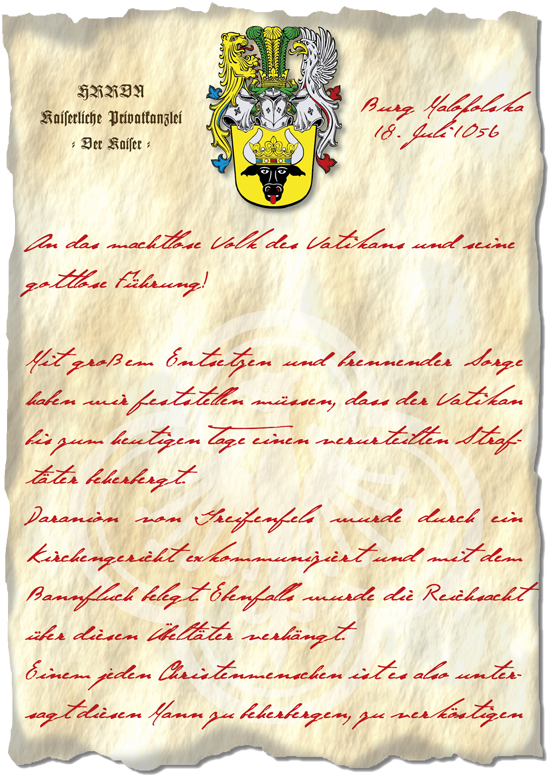 HRRDN
Kaiserliche Privatkanzlei
- Der Kaiser -
Burg Malopolska
18. Juli 1056
An das machtlose Volk des Vatikans und seine
gottlose Führung!
Mit großem Entsetzen und brennender Sorge
haben wir feststellen müssen, dass der Vatikan
bis zum heutigen Tage einen verurteilten Straf-
täter beherbergt.
Daranion von Greifenfels wurde durch ein
Kirchengericht exkommuniziert und mit dem
Bannfluch belegt. Ebenfalls wurde die Reichsacht
über diesen Übeltäter verhängt.
Einem jeden Christenmenschen ist es also unter-
sagt diesen Mann zu beherbergen, zu verköstigen